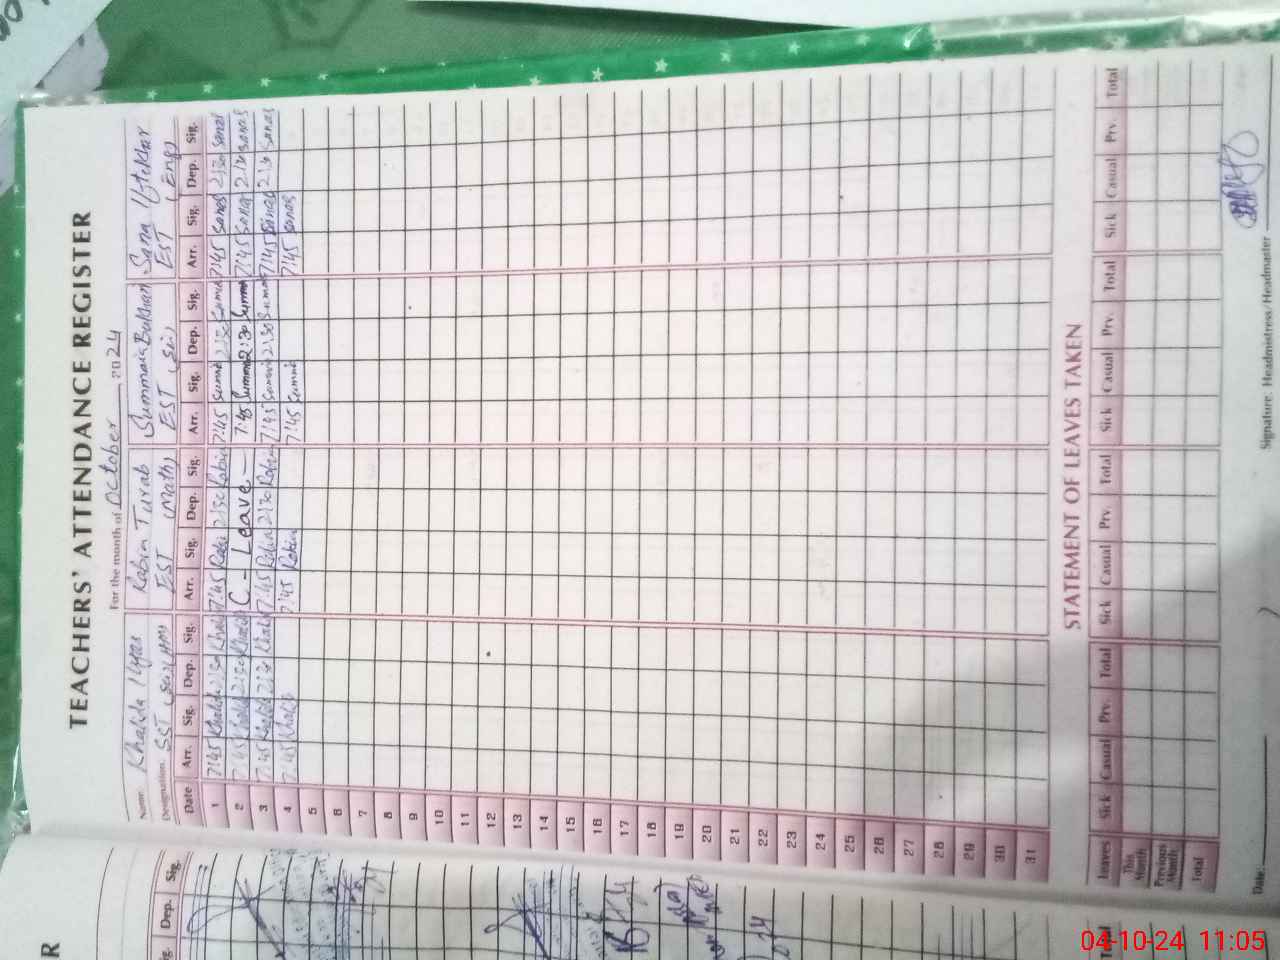 TEACHERS' ATTENDANCE REGISTER
For the month of October 2024
Name: Khalida Ilyas Rabim Turab Summaia Bukhari Sana Iftekhar
Designation: SST EST (Math) EST (Sci) EST (Eng)
Date Arr. Sig. Dep. Sig. Arr. Sig. Dep. Sig. Arr. Sig. Dep. Sig. Arr. Sig. Dep. Sig.
1 7:45 Khalida 2:30 Khalid 7:45 Rabi 2:30 Rabim 7:45 Summi 2:30 Summi 7:45 Sanas 2:30 Sanas
2 7:45 Khalid 2:30 Khalid C - Leave - 7:45 Summi 2:30 Summi 7:45 Sanas 2:30 Sanas
3 7:45 Khalid 2:30 Khalid 7:45 Rabim 2:30 Rabim 7:45 Summi 2:30 Summi 7:45 Sanas 2:30 Sanas
4 7:45 Khalid 7:45 Rabim 7:45 Summi 7:45 Sanas
5
6
7
8
9
10
11
12
13
14
15
16
17
18
19
20
21
22
23
24
25
26
27
28
29
30
31
STATEMENT OF LEAVES TAKEN
Leaves Sick Casual Prv. Total Sick Casual Prv. Total Sick Casual Prv. Total Sick Casual Prv. Total
This Month
Previous Month
Total
Date: Signature. Headmistress/Headmaster
R
Sig. Dep. Sig.
Total
04-10-24 11:05